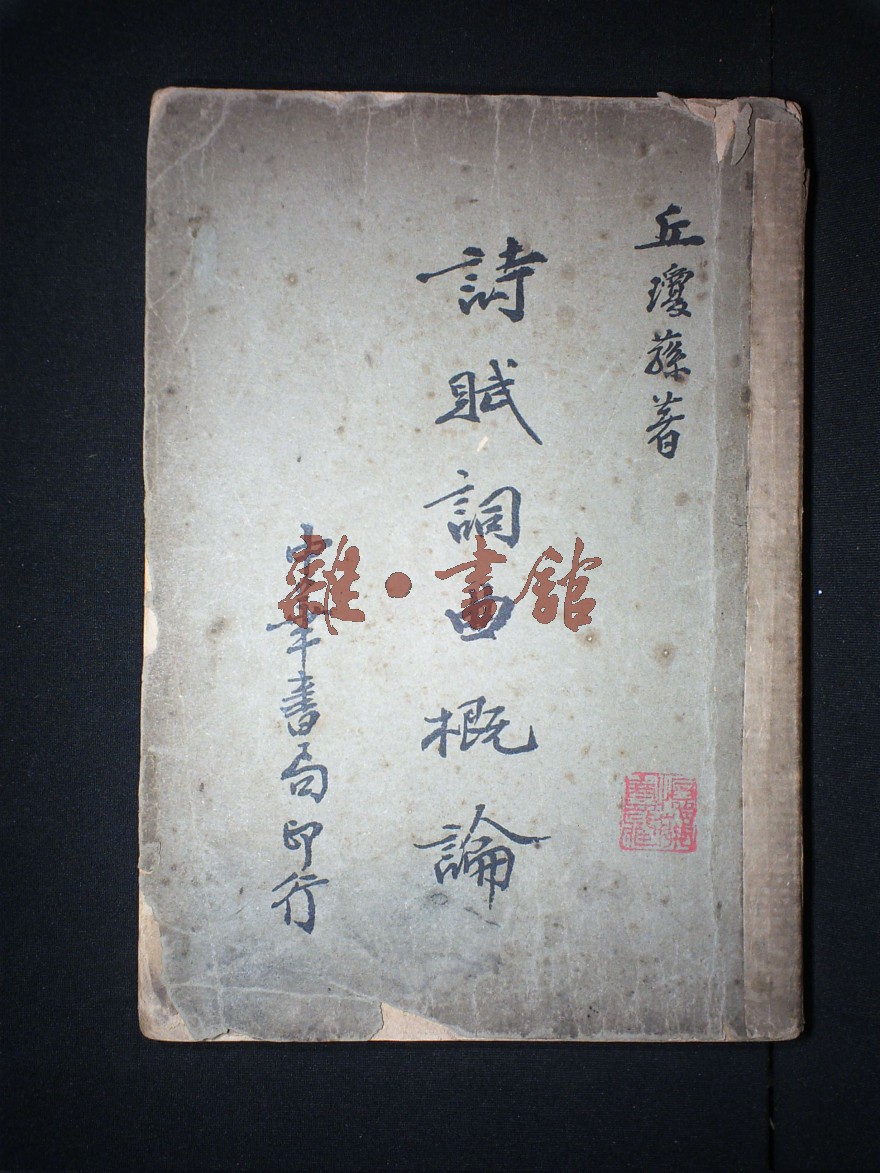 丘瓊蓀著
詩賦詞曲概論
中華書局印行
雜·書館